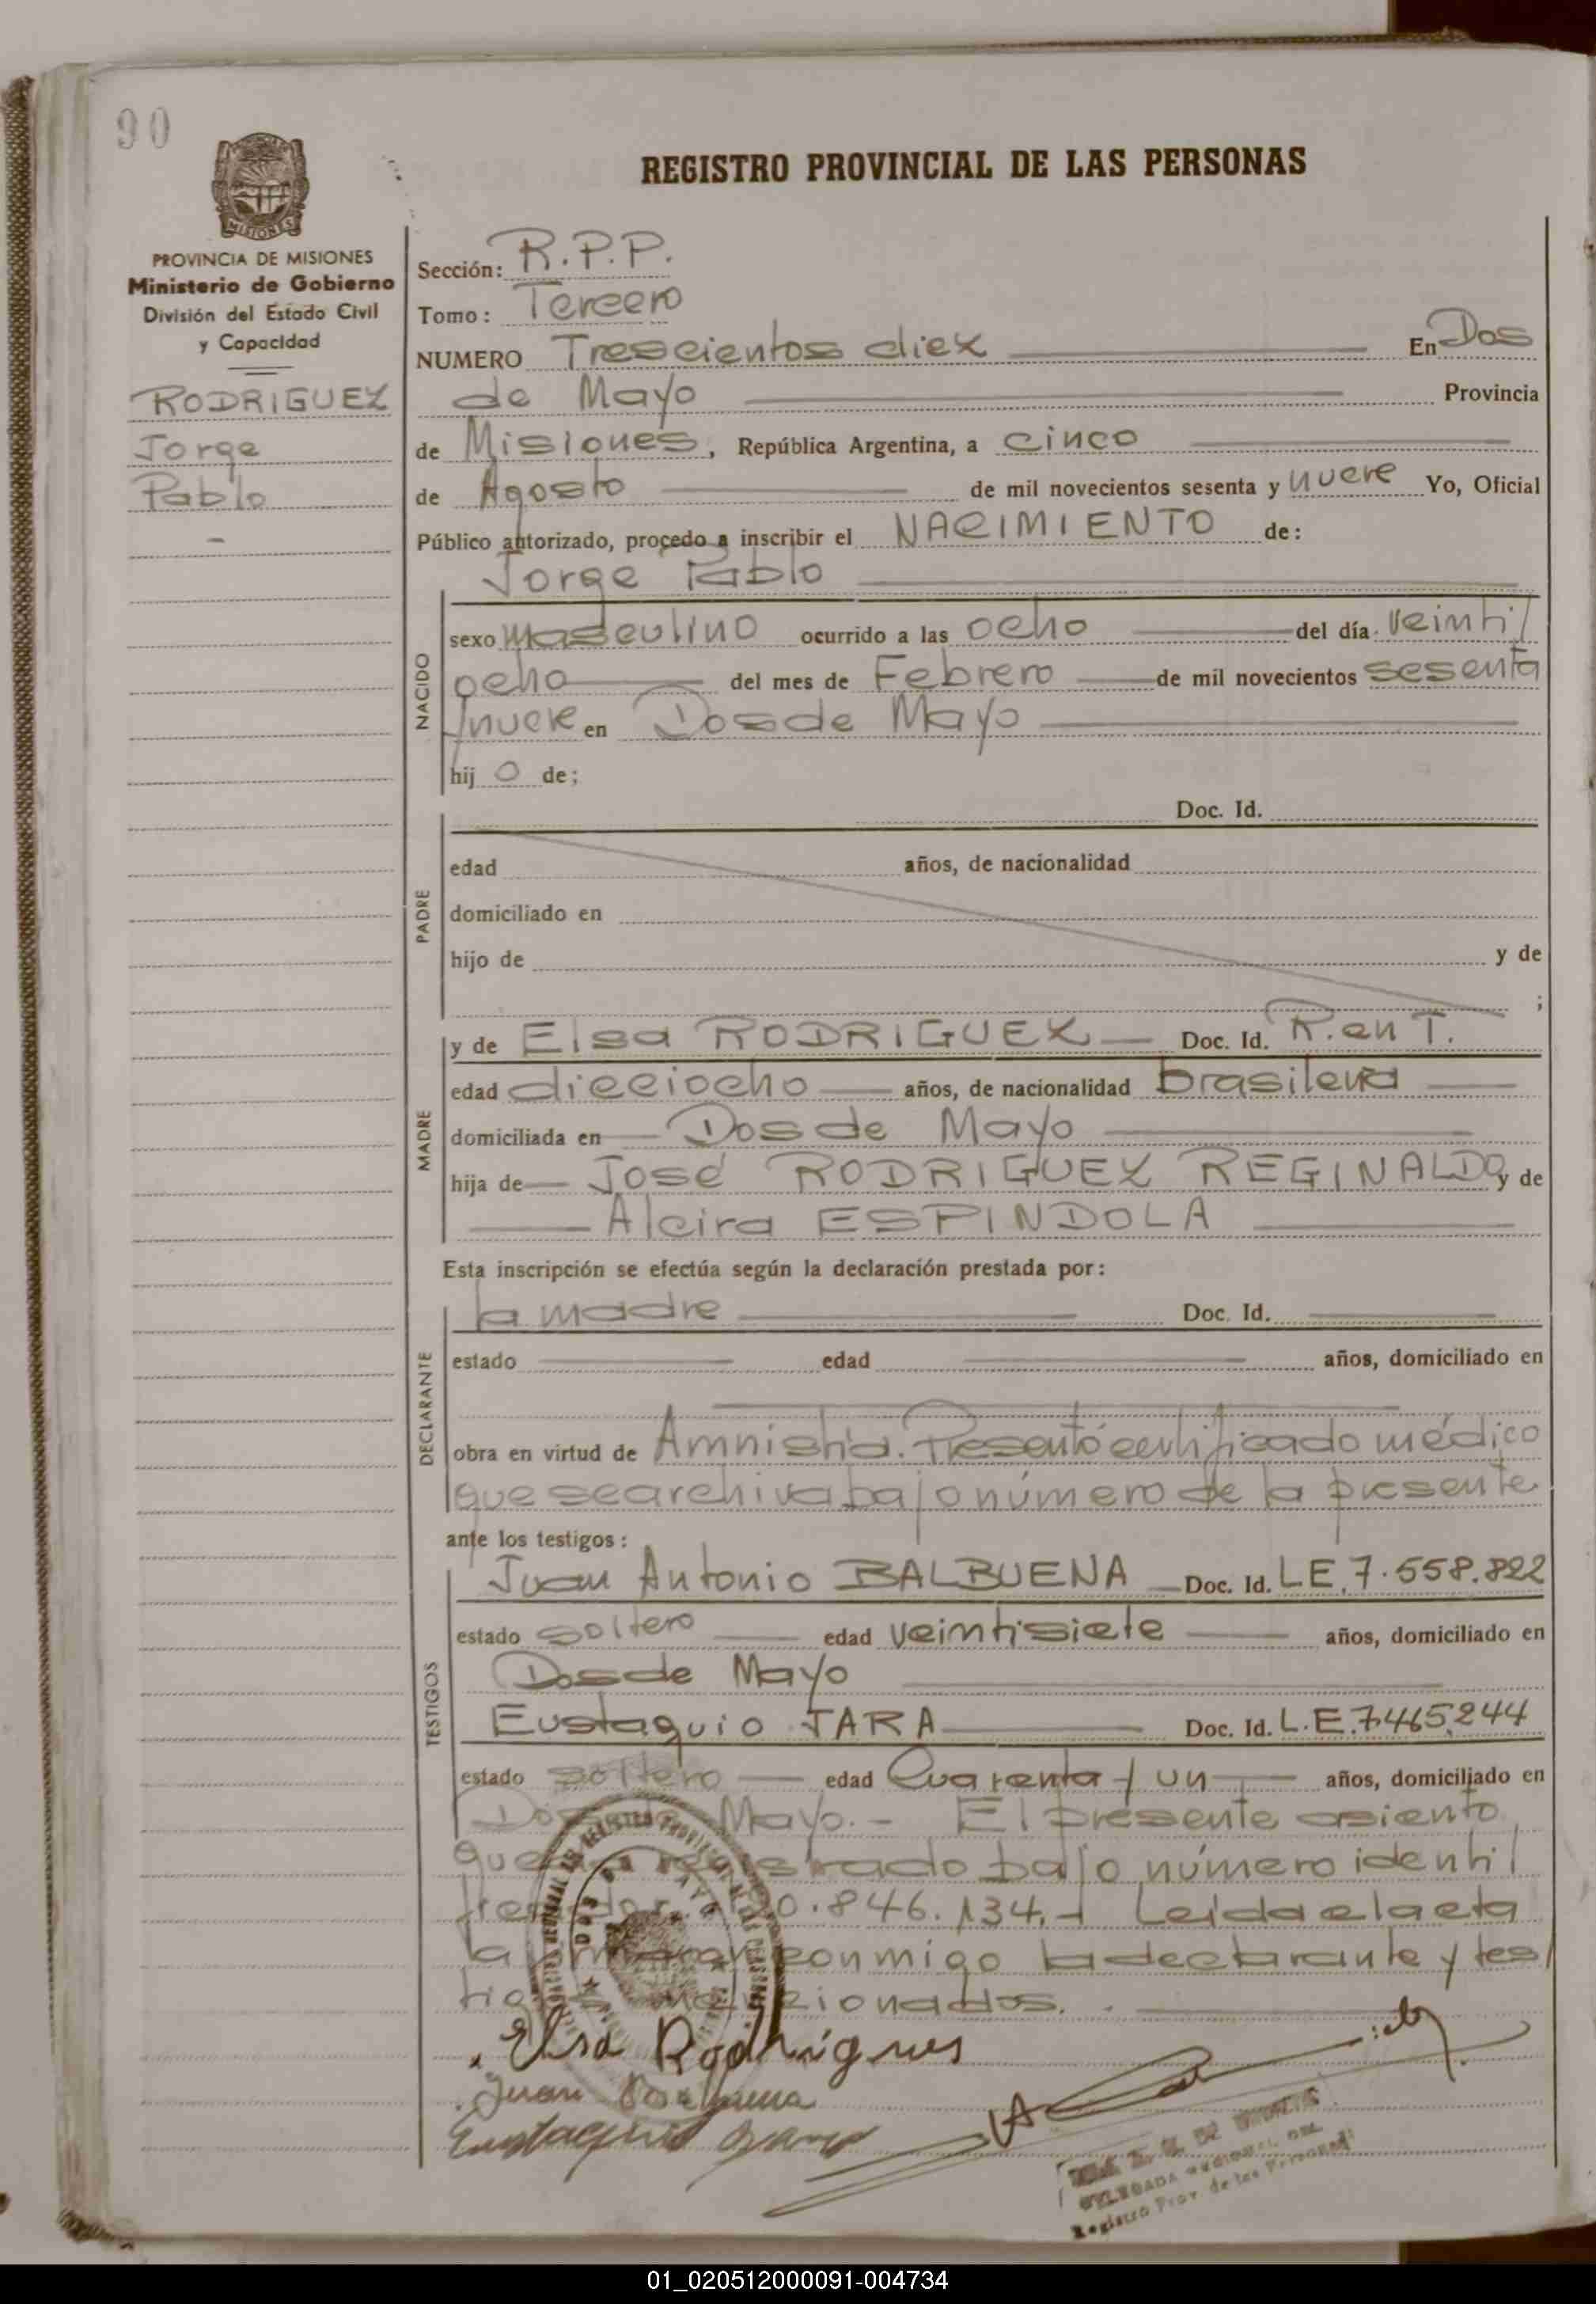 90
REGISTRO PROVINCIAL DE LAS PERSONAS
MISIONES
PROVINCIA DE MISIONES
Ministerio de Gobierno
División del Estado Civil
y Capacidad
RODRIGUEZ
Jorge
Pablo
Sección: R.P.P.
Tomo: Tercero
NUMERO Trescientos diez En Dos
de Mayo Provincia
de Misiones, República Argentina, a cinco
de Agosto de mil novecientos sesenta y nueve Yo, Oficial
Público autorizado, procedo a inscribir el NACIMIENTO de:
Jorge Pablo
NACIDO
sexo masculino ocurrido a las ocho del día veinti/
ocho del mes de Febrero de mil novecientos sesenta
y nueve en Dos de Mayo
hij o de;
PADRE
Doc. Id.
edad años, de nacionalidad
domiciliado en
hijo de y de
;
MADRE
y de Elsa RODRIGUEZ Doc. Id. R. en T.
edad dieciocho años, de nacionalidad brasilera
domiciliada en Dos de Mayo
hija de José RODRIGUEZ REGINALDO y de
Alcira ESPINDOLA
Esta inscripción se efectúa según la declaración prestada por:
DECLARANTE
la madre Doc. Id.
estado edad años, domiciliado en
obra en virtud de Amnistía. Presentó certificado médico
que se archiva bajo número de la presente
ante los testigos:
TESTIGOS
Juan Antonio BALBUENA Doc. Id. L.E. 7.558.822
estado soltero edad veintisiete años, domiciliado en
Dos de Mayo
Eustaquio JARA Doc. Id. L.E. 7.465.244
estado soltero edad Cuarenta y un años, domiciliado en
Dos Mayo.- El presente asiento
queda registrado bajo número identi/
20.846.134.- Leida el acta
la firman conmigo la declarante y tes/
tigos mencionados.
Elsa Rodrigues
Juan Balbuena
Eustaquio Jara
DELEGADA REGIONAL DEL
Registro Prov. de las Personas
01_020512000091-004734